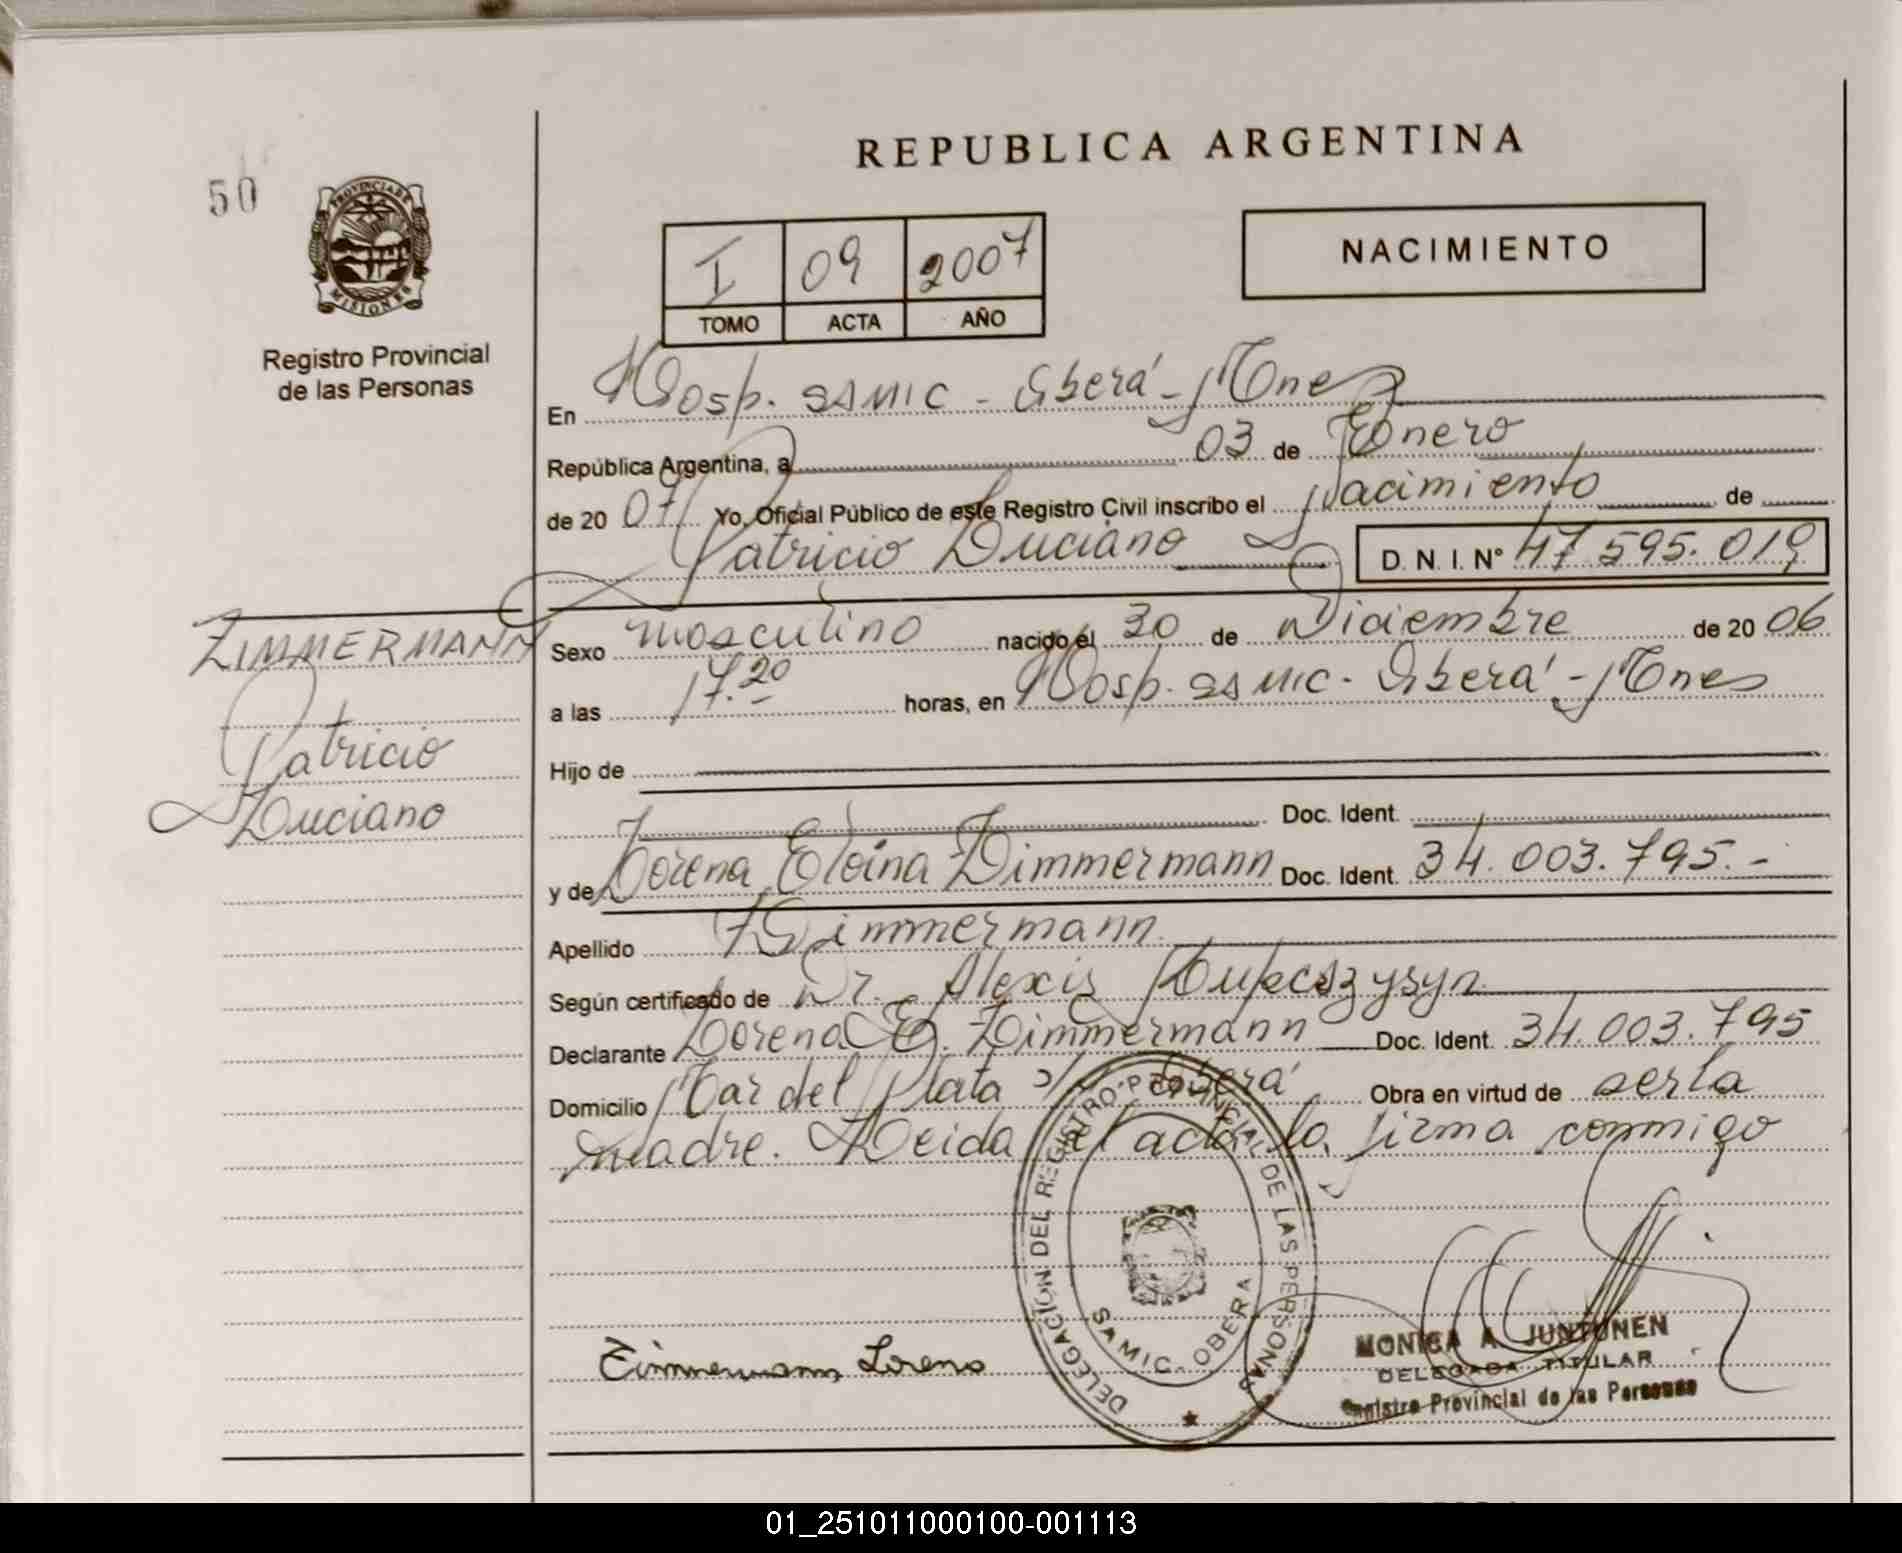 50
PROVINCIA DE
MISIONES
Registro Provincial
de las Personas
REPUBLICA ARGENTINA
I 09 2007
TOMO ACTA AÑO
NACIMIENTO
En Hosp. SAMIC - Oberá - Mnes
República Argentina, a 03 de Enero
de 20 07 Yo, Oficial Público de este Registro Civil inscribo el nacimiento de
Patricio Luciano D. N. I. N° 47.595.019
ZIMMERMANN
Patricio
Luciano
Sexo masculino nacido el 30 de Diciembre de 20 06
a las 17.20 horas, en Hosp. SAMIC - Oberá - Mnes
Hijo de
Doc. Ident.
y de Lorena Zimmermann Doc. Ident. 34.003.795.-
Apellido Zimmermann
Según certificado de Dr. Alexis
Declarante Lorena E. Zimmermann Doc. Ident. 34.003.795
Domicilio Mar del Plata s/n Oberá Obra en virtud de ser la
madre. Leida el acta la firma conmigo
DELEGACIÓN DEL REGISTRO PROVINCIAL DE LAS PERSONAS
SAMIC - OBERA
Zimmermann Lorena
MONICA A. JUNTUNEN
DELEGADA TITULAR
Registro Provincial de las Personas
01_251011000100-001113